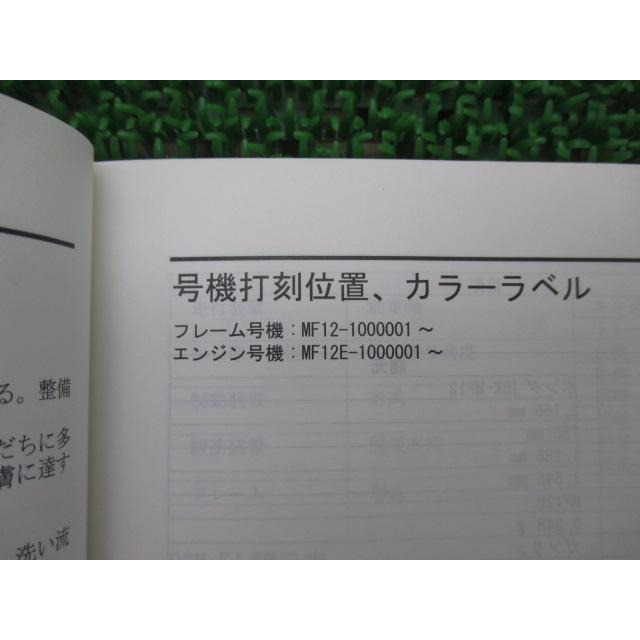 号機打刻位置、カラーラベル
フレーム号機：MF12-1000001～
エンジン号機：MF12E-1000001～
る。整備
だちに多
膚に達す
洗い流